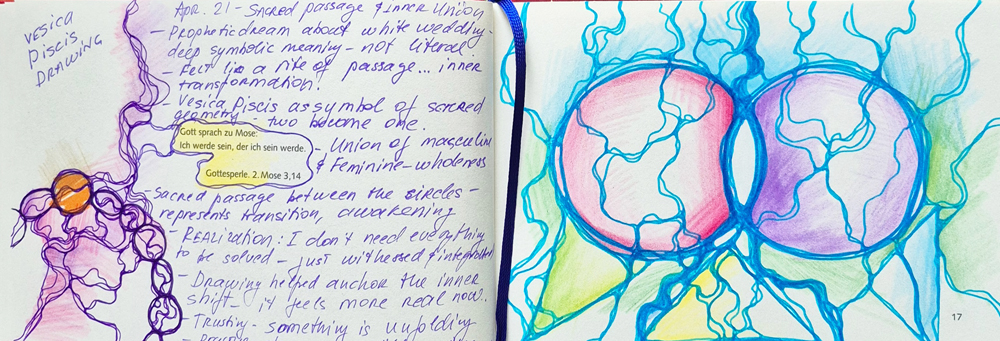 VESICA
PISCIS
DRAWING
Apr. 21 - Sacred passage & inner union
- Prophetic dream about white wedding -
deep symbolic meaning - not literal
- Felt like a rite of passage... inner
transformation!
- Vesica Piscis as symbol of sacred
geometry - two become one.
Gott sprach zu Mose:
Ich werde sein, der ich sein werde.
Gottesperle. 2. Mose 3,14
- Union of masculine
& Feminine - wholeness
- Sacred passage between the circles -
represents transition, awakening
- REALIZATION: I don't need everything
to be solved - just witnessed & integrated
- Drawing helped anchor the inner
shift - it feels more real now.
- Trusting - something is unfolding
17